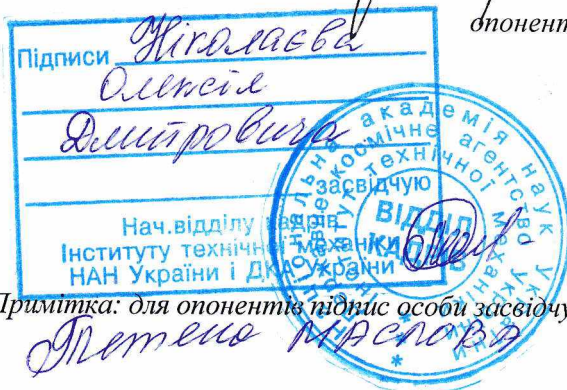 опонент
Підписи Ніколаєва
Олексія
Дмитровича
засвідчую
Нач.відділу кадрів
Інституту технічної механіки
НАН України і ДКА України
Національна академія наук України
Державне космічне агентство України
Інститут технічної механіки
ВІДДІЛ
КАДРІВ
Примітка: для опонентів підпис особи засвідчу
Тетяна МАСЛОВА